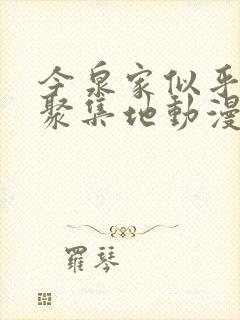 今泉家似乎
聚集地動漫
羅琴